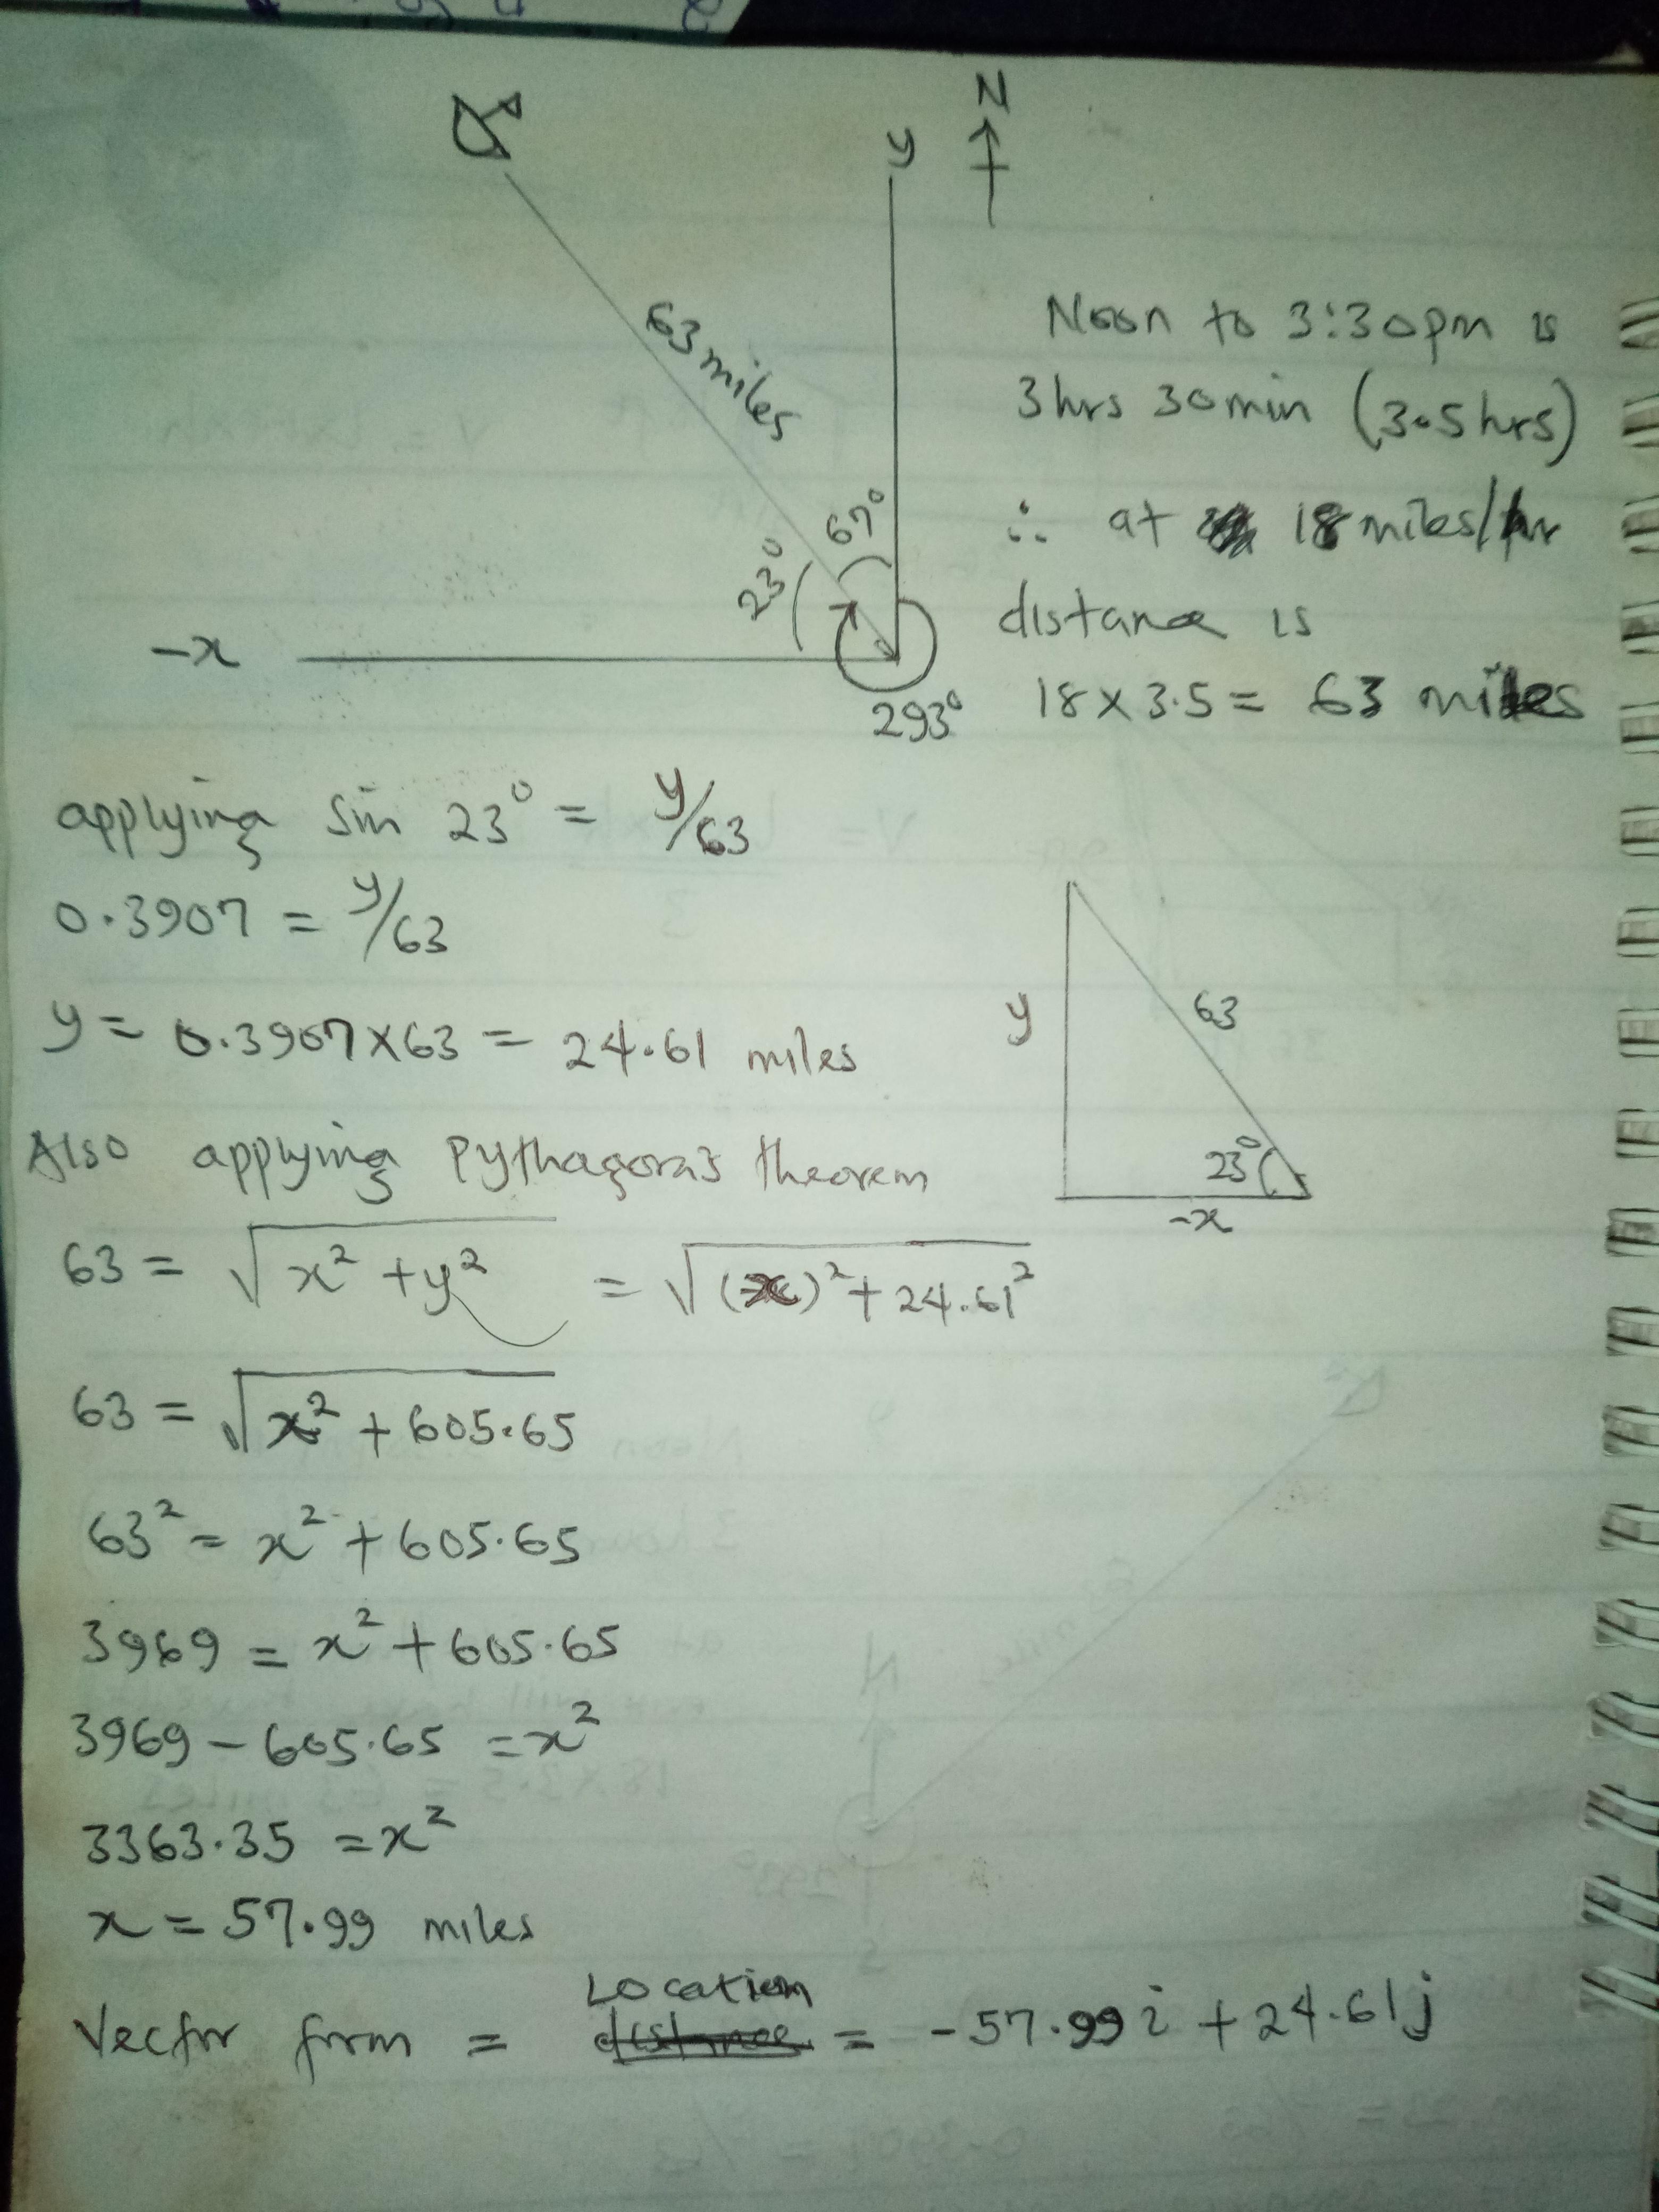 N
y
63 miles
67°
23°
-x
293°
Noon to 3:30pm is
3hrs 30min (3.5hrs)
∴ at 18 miles/hr
distance is
18 x 3.5 = 63 miles
applying Sin 23° = y/63
0.3907 = y/63
y = 0.3907x63 = 24.61 miles
y
63
23°
-x
Also applying Pythagoras theorem
63 = √x² + y² = √(-x)² + 24.61²
63 = √x² + 605.65
63² = x² + 605.65
3969 = x² + 605.65
3969 - 605.65 = x²
3363.35 = x²
x = 57.99 miles
Location
Vector form = distance = -57.99 i + 24.61j